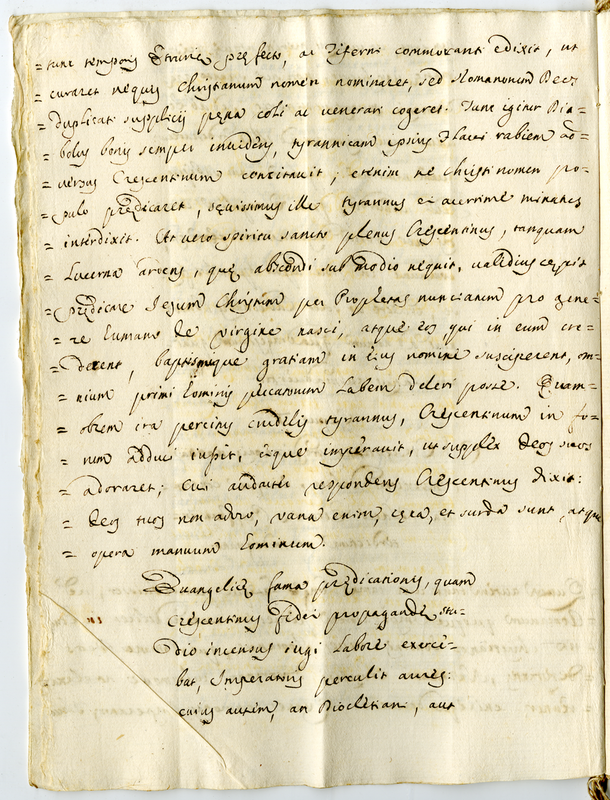 = tunc temporis Etruriæ pręfecto, ac Tiferni commoranti edixit, ut
= curaret nequis Christianum nomen nominaret, sed Romanorum Deos
= duplicati supplicij pęna coli ac venerari cogeret. Tunc igitur Dia=
= bolus bonis semper invidens, tyrannicam ipsius Flacci rabiem ad=
= versus Crescentinum concitavit; etenim ne Christi nomen po=
= pulo prędicaret, sęvissimus ille tyrannus ei acerrime minitans
= interdixit. At vero spiritu sancto plenus Crescentinus, tanquam
= Lucerna ardens, quę abscondi sub modio nequit, validius cępit
= prędicare Jesum Christum per Prophetas nunciatum pro gene=
= re humano de virgine nasci, atque eos, qui in eum cre=
= derent, baptismique gratiam in ejus nomine susciperent, om=
= nium primi hominis peccatorum labem deleri posse. Quam=
= obrem ira percitus crudelis tyrannus, Crescentinum in fo=
= rum adduci jussit, eique imperavit, ut supplex deos suos
= adoraret; cui audacter respondens Crescentinus dixit:
= deos tuos non adoro, vana enim, cęca, et surda sunt, atque
= opera manuum hominum.
Evangelicę fama prędicationis, quam
Crescentinus fidei propagandę stu=
dio incensus jugi labore exerce=
bat, Imperatoris perculit aures:
cujus autem, an Diocletiani, aut